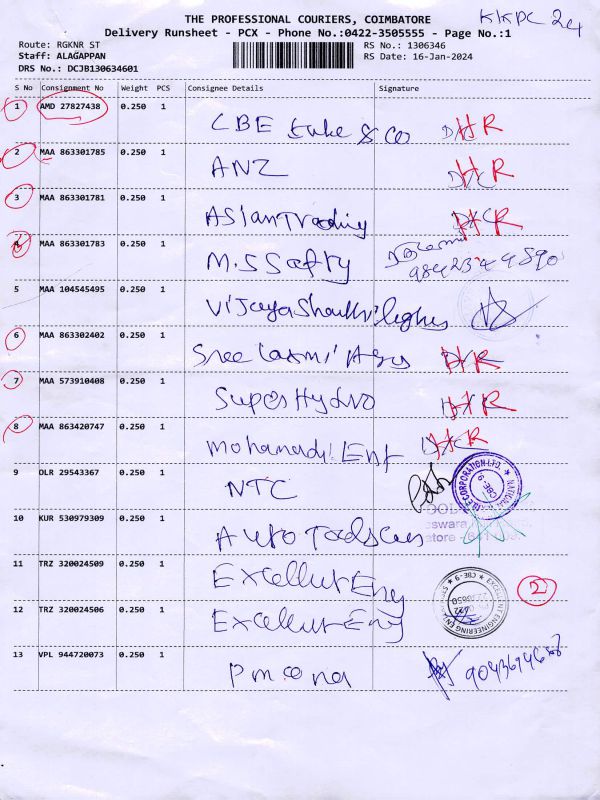 THE PROFESSIONAL COURIERS, COIMBATORE
KKPC 24
Delivery Runsheet - PCX - Phone No.:0422-3505555 - Page No.:1
Route: RGKNR ST
RS No.: 1306346
Staff: ALAGAPPAN
RS Date: 16-Jan-2024
DRS No.: DCJB130634601
S No Consignment No Weight PCS Consignee Details Signature
1 AMD 27827438 0.250 1 CBE tube & co HR
2 MAA 863301785 0.250 1 ANZ HR
3 MAA 863301781 0.250 1 Asian Trading HR
4 MAA 863301783 0.250 1 M.S Safty 9842344890
5 MAA 104545495 0.250 1
6 MAA 863302402 0.250 1 Sree Laxmi HR
7 MAA 573910408 0.250 1 Super Hydro HR
8 MAA 863420747 0.250 1 HR
9 DLR 29543367 0.250 1 NTC
10 KUR 530979309 0.250 1 Auto
11 TRZ 320024509 0.250 1 Excellent Eng
2
12 TRZ 320024506 0.250 1 Excellent Eng
13 VPL 944720073 0.250 1